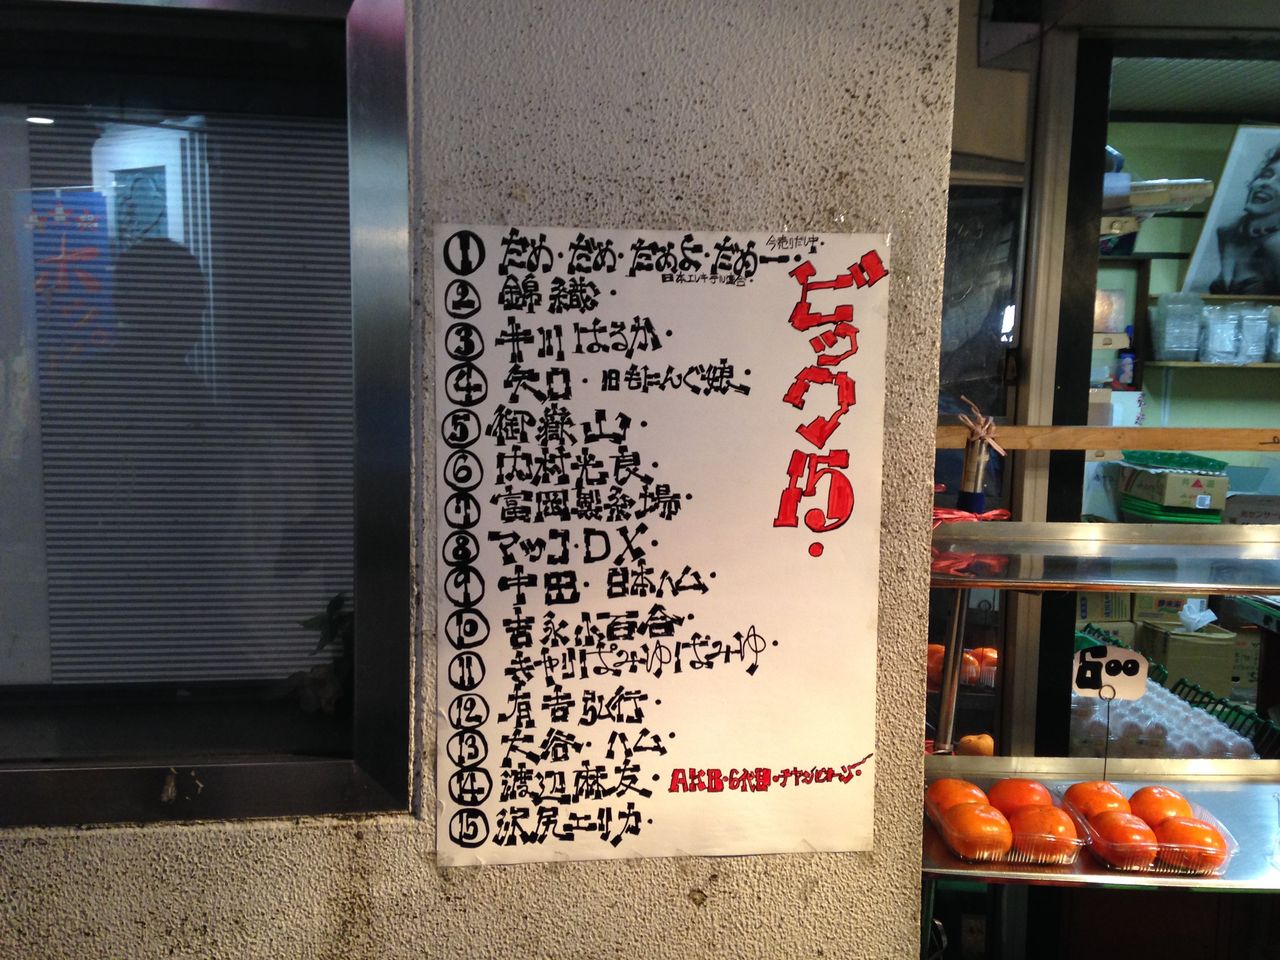 ビック15.
① だめ・だめ・だめよ・だめー・ 今売りだし中.
日本エレキテル連合.
② 錦織・
③ 半川はるか・
④ 矢口・旧もーにんぐ娘・
⑤ 御嶽山・
⑥ 内村光良・
⑦ 富岡製糸場・
⑧ マッコ・DX・
⑨ 中田・日本ハム・
⑩ 吉永小百合・
⑪ きゃりぱみゅぱみゅ・
⑫ 有吉弘行・
⑬ 大谷・ハム・
⑭ 渡辺麻友・ AKB・6代目・チャンピオーン・
⑮ 沢尻エリカ・
600